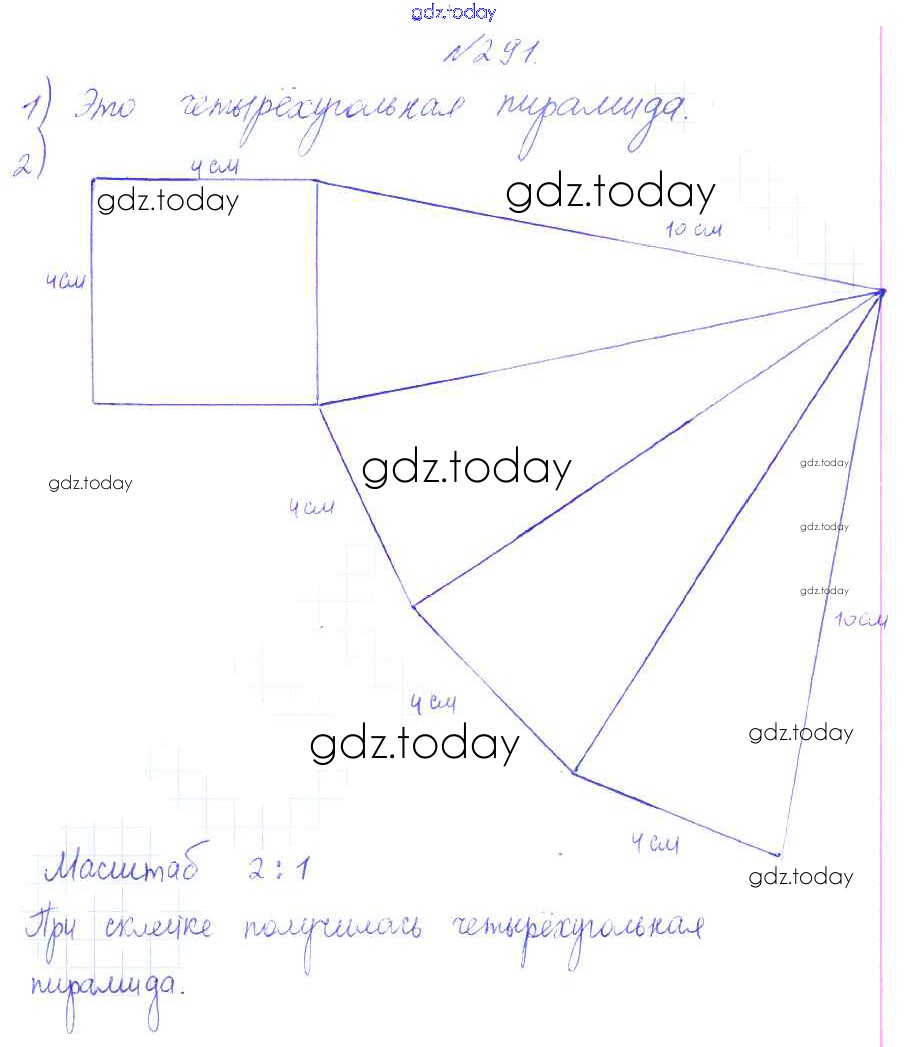 gdz.today
№291.
1) Это четырёхугольная пирамида.
2)
4 см
gdz.today
gdz.today
10 см
4 см
gdz.today
gdz.today
gdz.today
4 см
gdz.today
gdz.today
10 см
4 см
gdz.today
gdz.today
4 см
Масштаб 2 : 1
gdz.today
При склейке получилась четырёхугольная
пирамида.